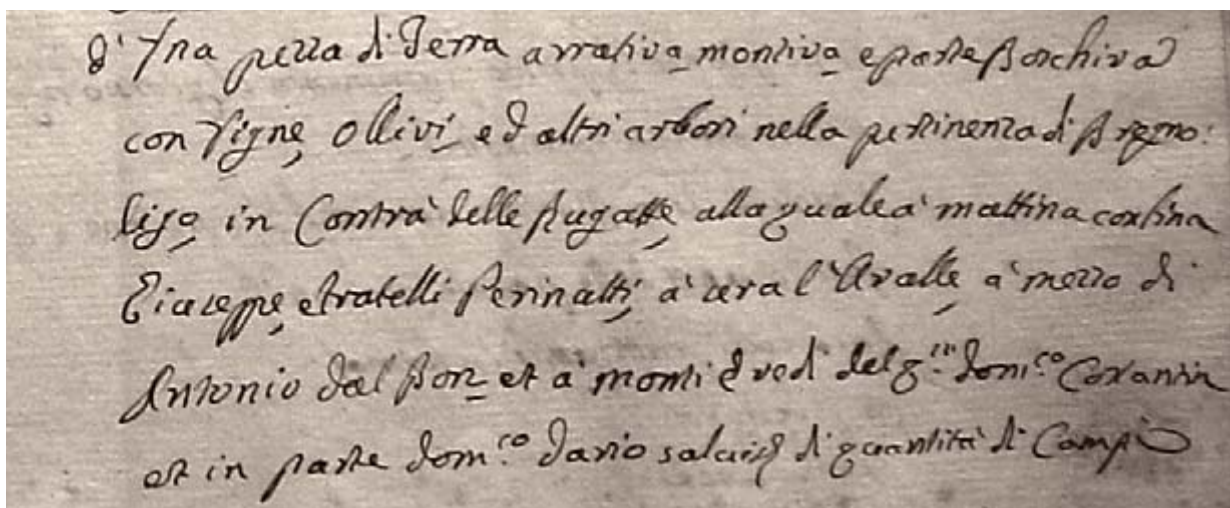 d'Una pezza di Terra arrativa montiva e parte Boschiva
con Vigne, Ollivi, ed altri arbori nella pertinenza di Bregno:
ligo in Contrà delle Bugatte, alla quale à mattina confina
Giuseppe, e fratelli Perinatti, à sera l'Avalle, à mezzo di
Antonio dal Bon et à monti Eredi del q.m Dom.co
et in parte Dom.co Dario salvis di quantità di Campi